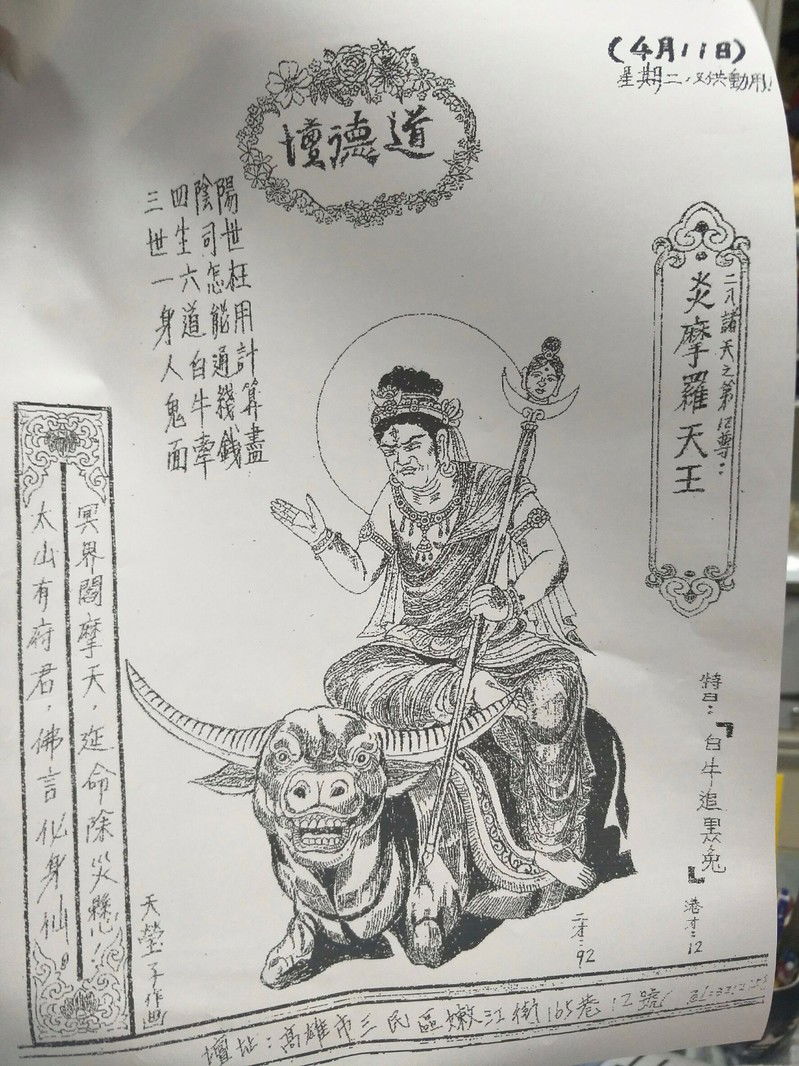 (4月11日)
星期二、又供動用!
道德壇
二十諸天之第12尊:
炎摩羅天王
陽世枉用計算盡
陰司怎能通綫錢
四生六道白牛牽
三世一身人鬼面
特:『白牛追黑兔』
港才:12
二才:92
冥界閻摩天,延命除災愆!
太山有府君,佛言化身仙。
天瑩子作画
壇址:高雄市三民區嫩江街165巷12號